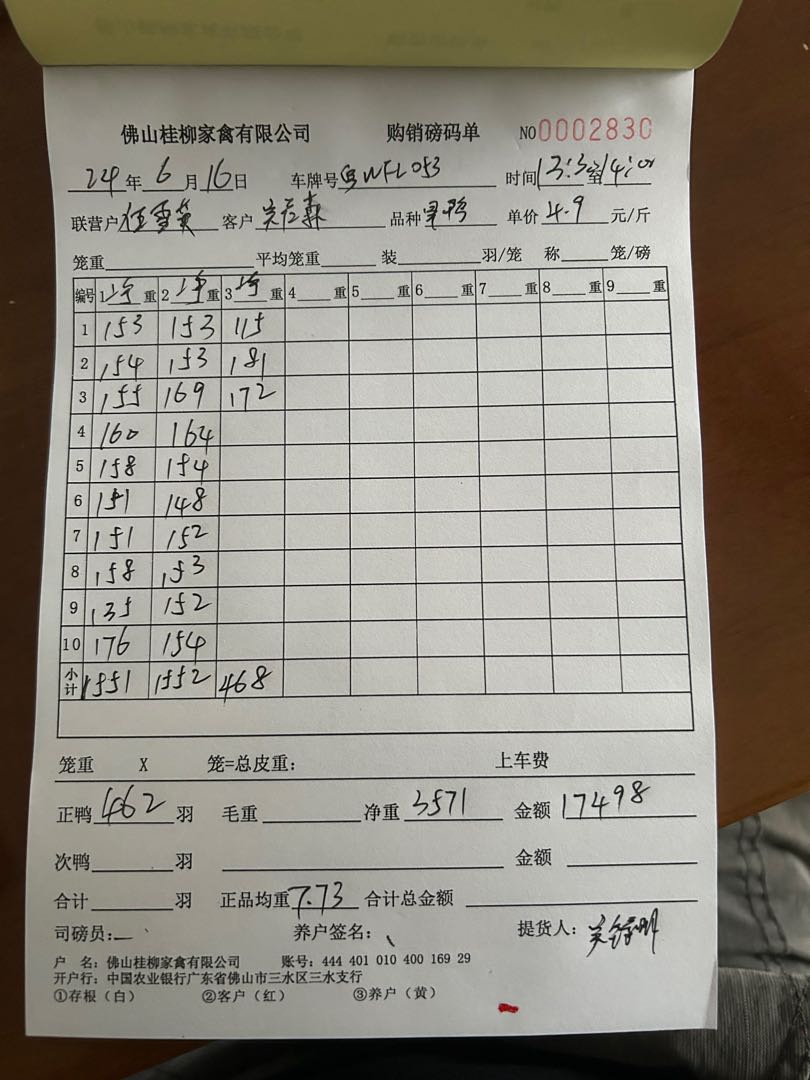 佛山桂柳家禽有限公司 购销磅码单 NO0002830
24年6月16日 车牌号粤WFL053 时间13:3至14:00
联营户 客户 品种 单价4.9元/斤
笼重 平均笼重 装 羽/笼 称 笼/磅
编号 1 重 2 重 3 重 4 重 5 重 6 重 7 重 8 重 9 重
1 153 153 115
2 154 153 181
3 155 169 172
4 160 164
5 158 154
6 151 148
7 151 152
8 158 153
9 135 152
10 176 154
小计 1551 1552 468
笼重 X 笼=总皮重: 上车费
正鸭462羽 毛重 净重3571 金额17498
次鸭 羽 金额
合计 羽 正品均重7.73 合计总金额
司磅员: 养户签名: 提货人:
户 名: 佛山桂柳家禽有限公司 账号: 444 401 010 400 169 29
开户行: 中国农业银行广东省佛山市三水区三水支行
①存根(白) ②客户(红) ③养户(黄)